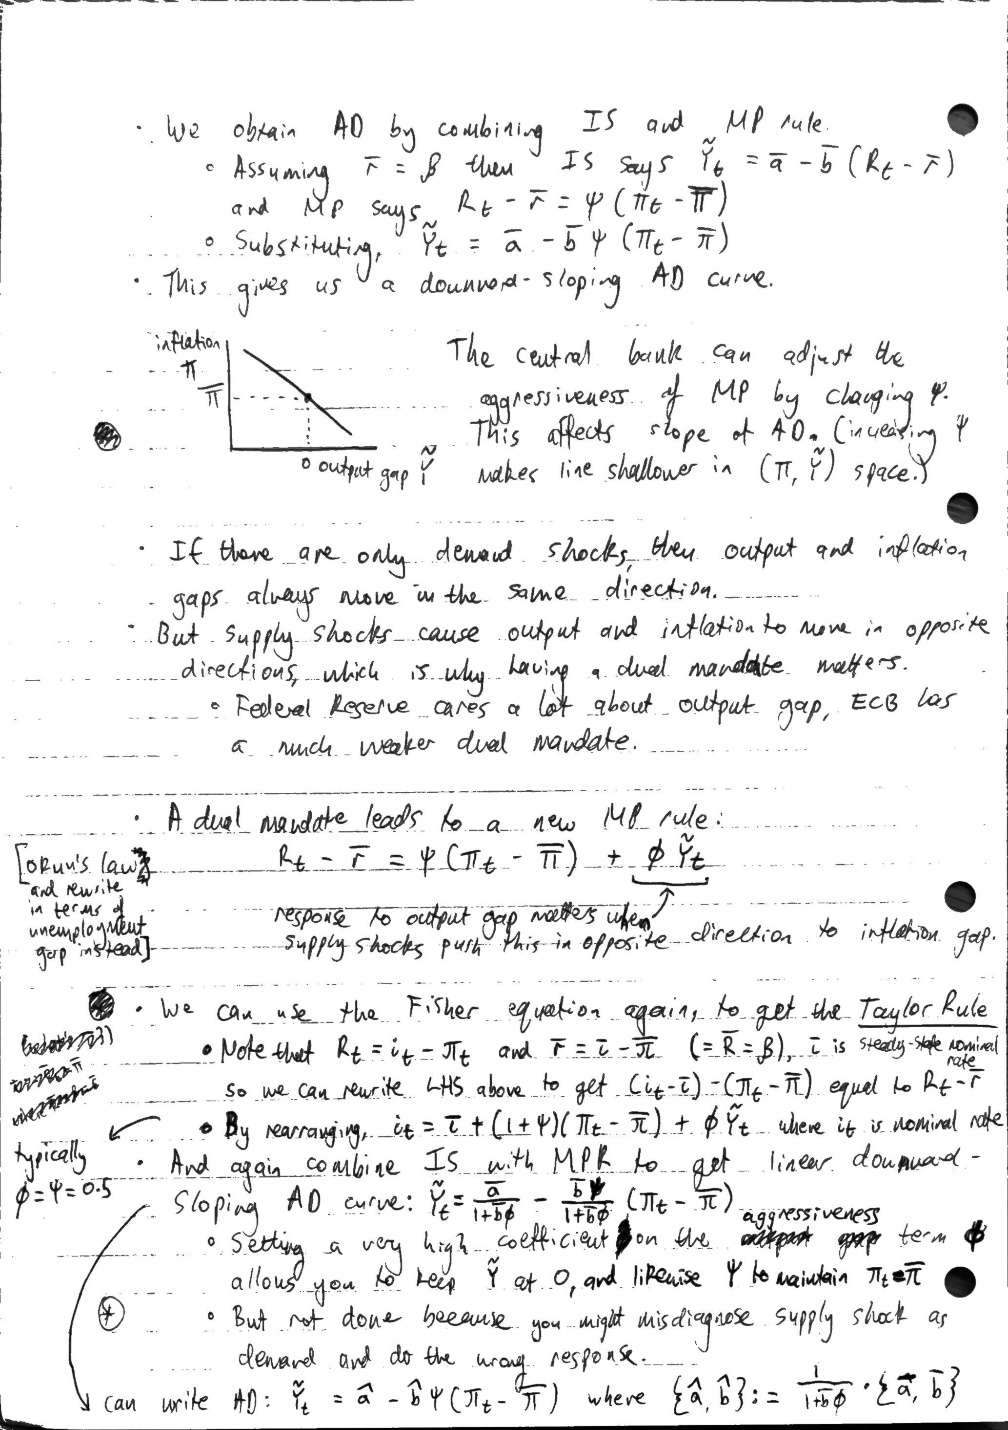 · We obtain AD by combining IS and MP rule.
∘ Assuming r̄ = β then IS says Ỹt = ā - b̄ (Rt - r̄)
and MP says Rt - r̄ = ψ (πt - π̄)
∘ Substituting, Ỹt = ā - b̄ ψ (πt - π̄)
· This gives us a downward-sloping AD curve.
inflation
π
π̄
0 output gap Ỹ
The central bank can adjust the
aggressiveness of MP by changing ψ.
This affects slope of AD. (increasing ψ
makes line shallower in (π, Ỹ) space.)
· If there are only demand shocks, then output and inflation
gaps always move in the same direction.
· But supply shocks cause output and inflation to move in opposite
directions, which is why having a dual mandate matters.
∘ Federal Reserve cares a lot about output gap, ECB has
a much weaker dual mandate.
· A dual mandate leads to a new MP rule:
Rt - r̄ = ψ (πt - π̄) + ϕ Ỹt
[Okun's law
and rewrite
in terms of
unemployment
gap instead]
response to output gap matters when
supply shocks push this in opposite direction to inflation gap.
· We can use the Fisher equation again, to get the Taylor Rule
• Note that Rt = it - πt and r̄ = ī - π̄ (= R̄ = β), ī is steady-state nominal
rate
so we can rewrite LHS above to get (it - ī) - (πt - π̄) equal to Rt - r̄
• By rearranging, it = ī + (1+ψ)(πt - π̄) + ϕỸt where it is nominal rate
typically
ϕ = ψ = 0.5
· And again combine IS with MPR to get linear downward-
sloping AD curve: Ỹt = ā/(1+b̄ϕ) - b̄ψ/(1+b̄ϕ) (πt - π̄)
aggressiveness
∘ Setting a very high coefficient on the term ϕ
allows you to keep Ỹ at 0, and likewise ψ to maintain πt = π̄
∘ But not done because you might misdiagnose supply shock as
demand and do the wrong response.
can write AD: Ỹt = â - b̂ ψ (πt - π̄) where {â, b̂} := 1/(1+b̄ϕ) · {ā, b̄}